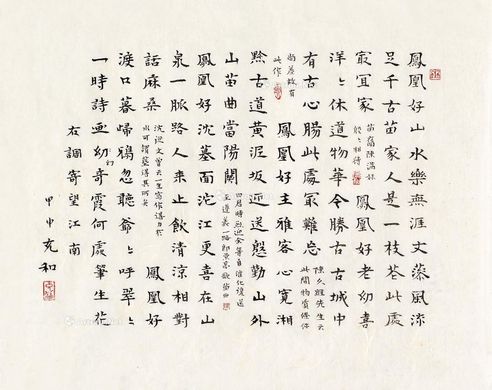 鳳凰好山水樂無涯文藻風流
足千古苗家人是一枝花此處
最宜家
苗裔陳滿妹
殷殷相待
鳳凰好老幼喜
洋洋休道物華今勝古古城中
有古心腸此處最難忘
此間物質條件
尚差故有
此作
鳳凰好主雅客心寬湘
黔古道黃泥坂迎送殷勤山外
山苗曲當陽關
鳳凰好沈墓面沱江更喜在山
泉一脈路人來止飲清涼相對
話麻桑
沈從文曾云一生寫作得力於
水可謂盡得其所矣
鳳凰好
口暮歸鴉忽聽爺爺呼翠翠
一時詩畫幻奇霞何處筆生花
右調寄望江南
甲申充和